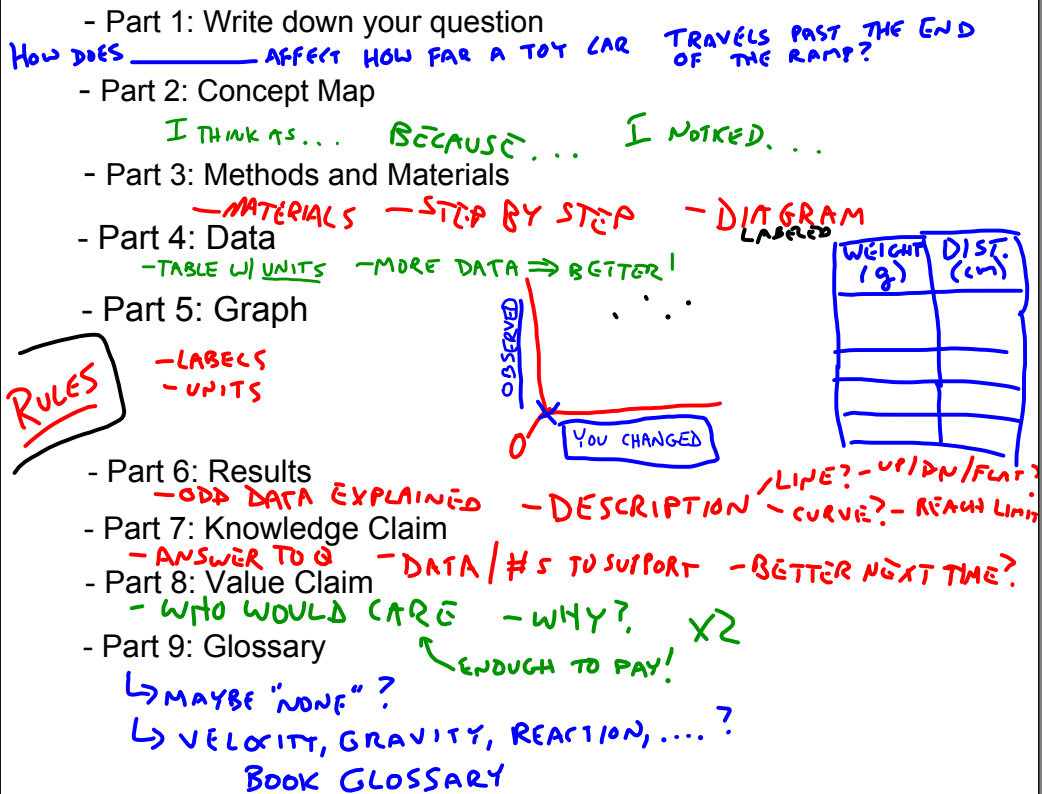 - Part 1: Write down your question
HOW DOES ________ AFFECT HOW FAR A TOY CAR TRAVELS PAST THE END OF THE RAMP?
- Part 2: Concept Map
I THINK AS... BECAUSE... I NOTICED...
- Part 3: Methods and Materials
- MATERIALS - STEP BY STEP - DIAGRAM
LABELED
- Part 4: Data
- TABLE W/ UNITS - MORE DATA ⇒ BETTER!
WEIGHT (g) DIST. (cm)
- Part 5: Graph
RULES
- LABELS
- UNITS
OBSERVED
0
YOU CHANGED
- Part 6: Results
- ODD DATA EXPLAINED - DESCRIPTION
LINE? - UP/DN/FLAT?
CURVE? - REACH LIMIT
- Part 7: Knowledge Claim
- ANSWER TO Q - DATA/#S TO SUPPORT - BETTER NEXT TIME?
- Part 8: Value Claim
- WHO WOULD CARE - WHY? X2
ENOUGH TO PAY!
- Part 9: Glossary
↳ MAYBE "NONE"?
↳ VELOCITY, GRAVITY, REACTION, ....?
BOOK GLOSSARY